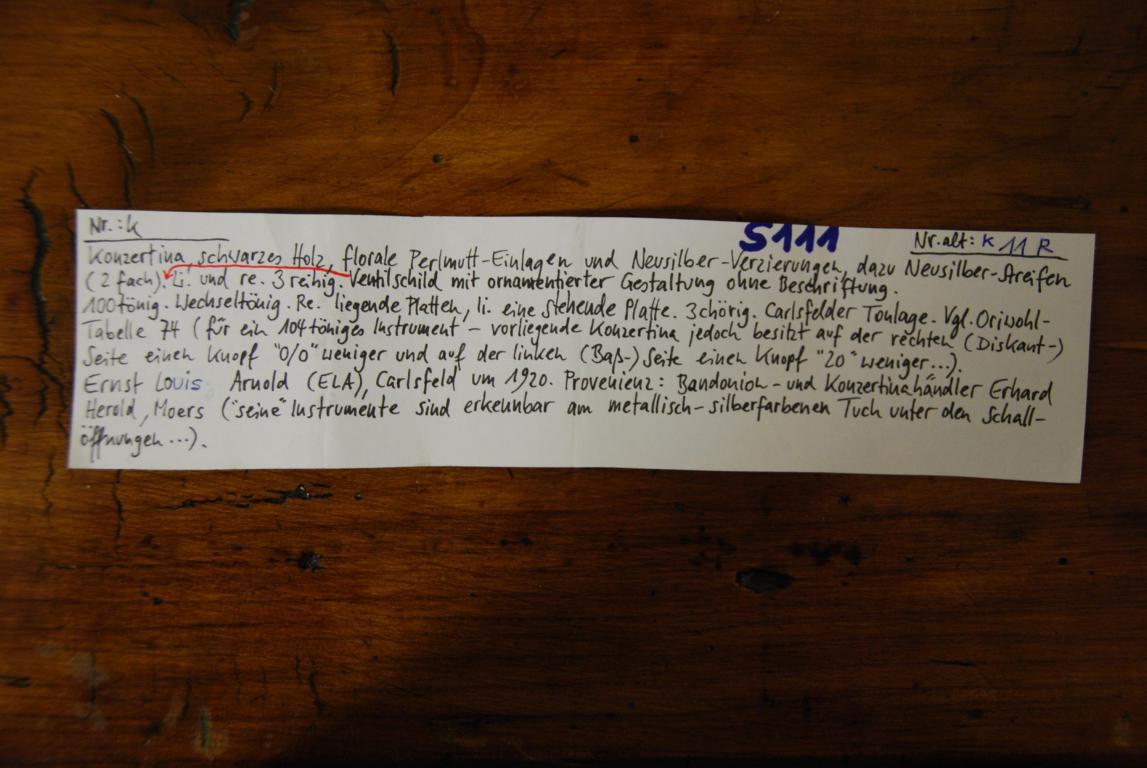 Nr.: k
S111
Nr. alt: K 11 R
Konzertina, schwarzes Holz, florale Perlmutt-Einlagen und Neusilber-Verzierungen, dazu Neusilber-Streifen
(2 fach). Li. und re. 3 reihig. Ventilschild mit ornamentierter Gestaltung ohne Beschriftung.
100tönig. Wechseltönig. Re. liegende Platten, li. eine stehende Platte. 3chörig. Carlsfelder Tonlage. Vgl. Oriwohl-
Tabelle 74 (für ein 104töniges Instrument - vorliegende Konzertina jedoch besitzt auf der rechten (Diskant-)
Seite einen Knopf "0/0" weniger und auf der linken (Baß-) Seite einen Knopf "20" weniger...).
Ernst Louis Arnold (ELA), Carlsfeld um 1920. Provenienz: Bandonion- und Konzertinahändler Erhard
Herold, Moers ("seine" Instrumente sind erkennbar am metallisch-silberfarbenen Tuch unter den Schall-
öffnungen...).